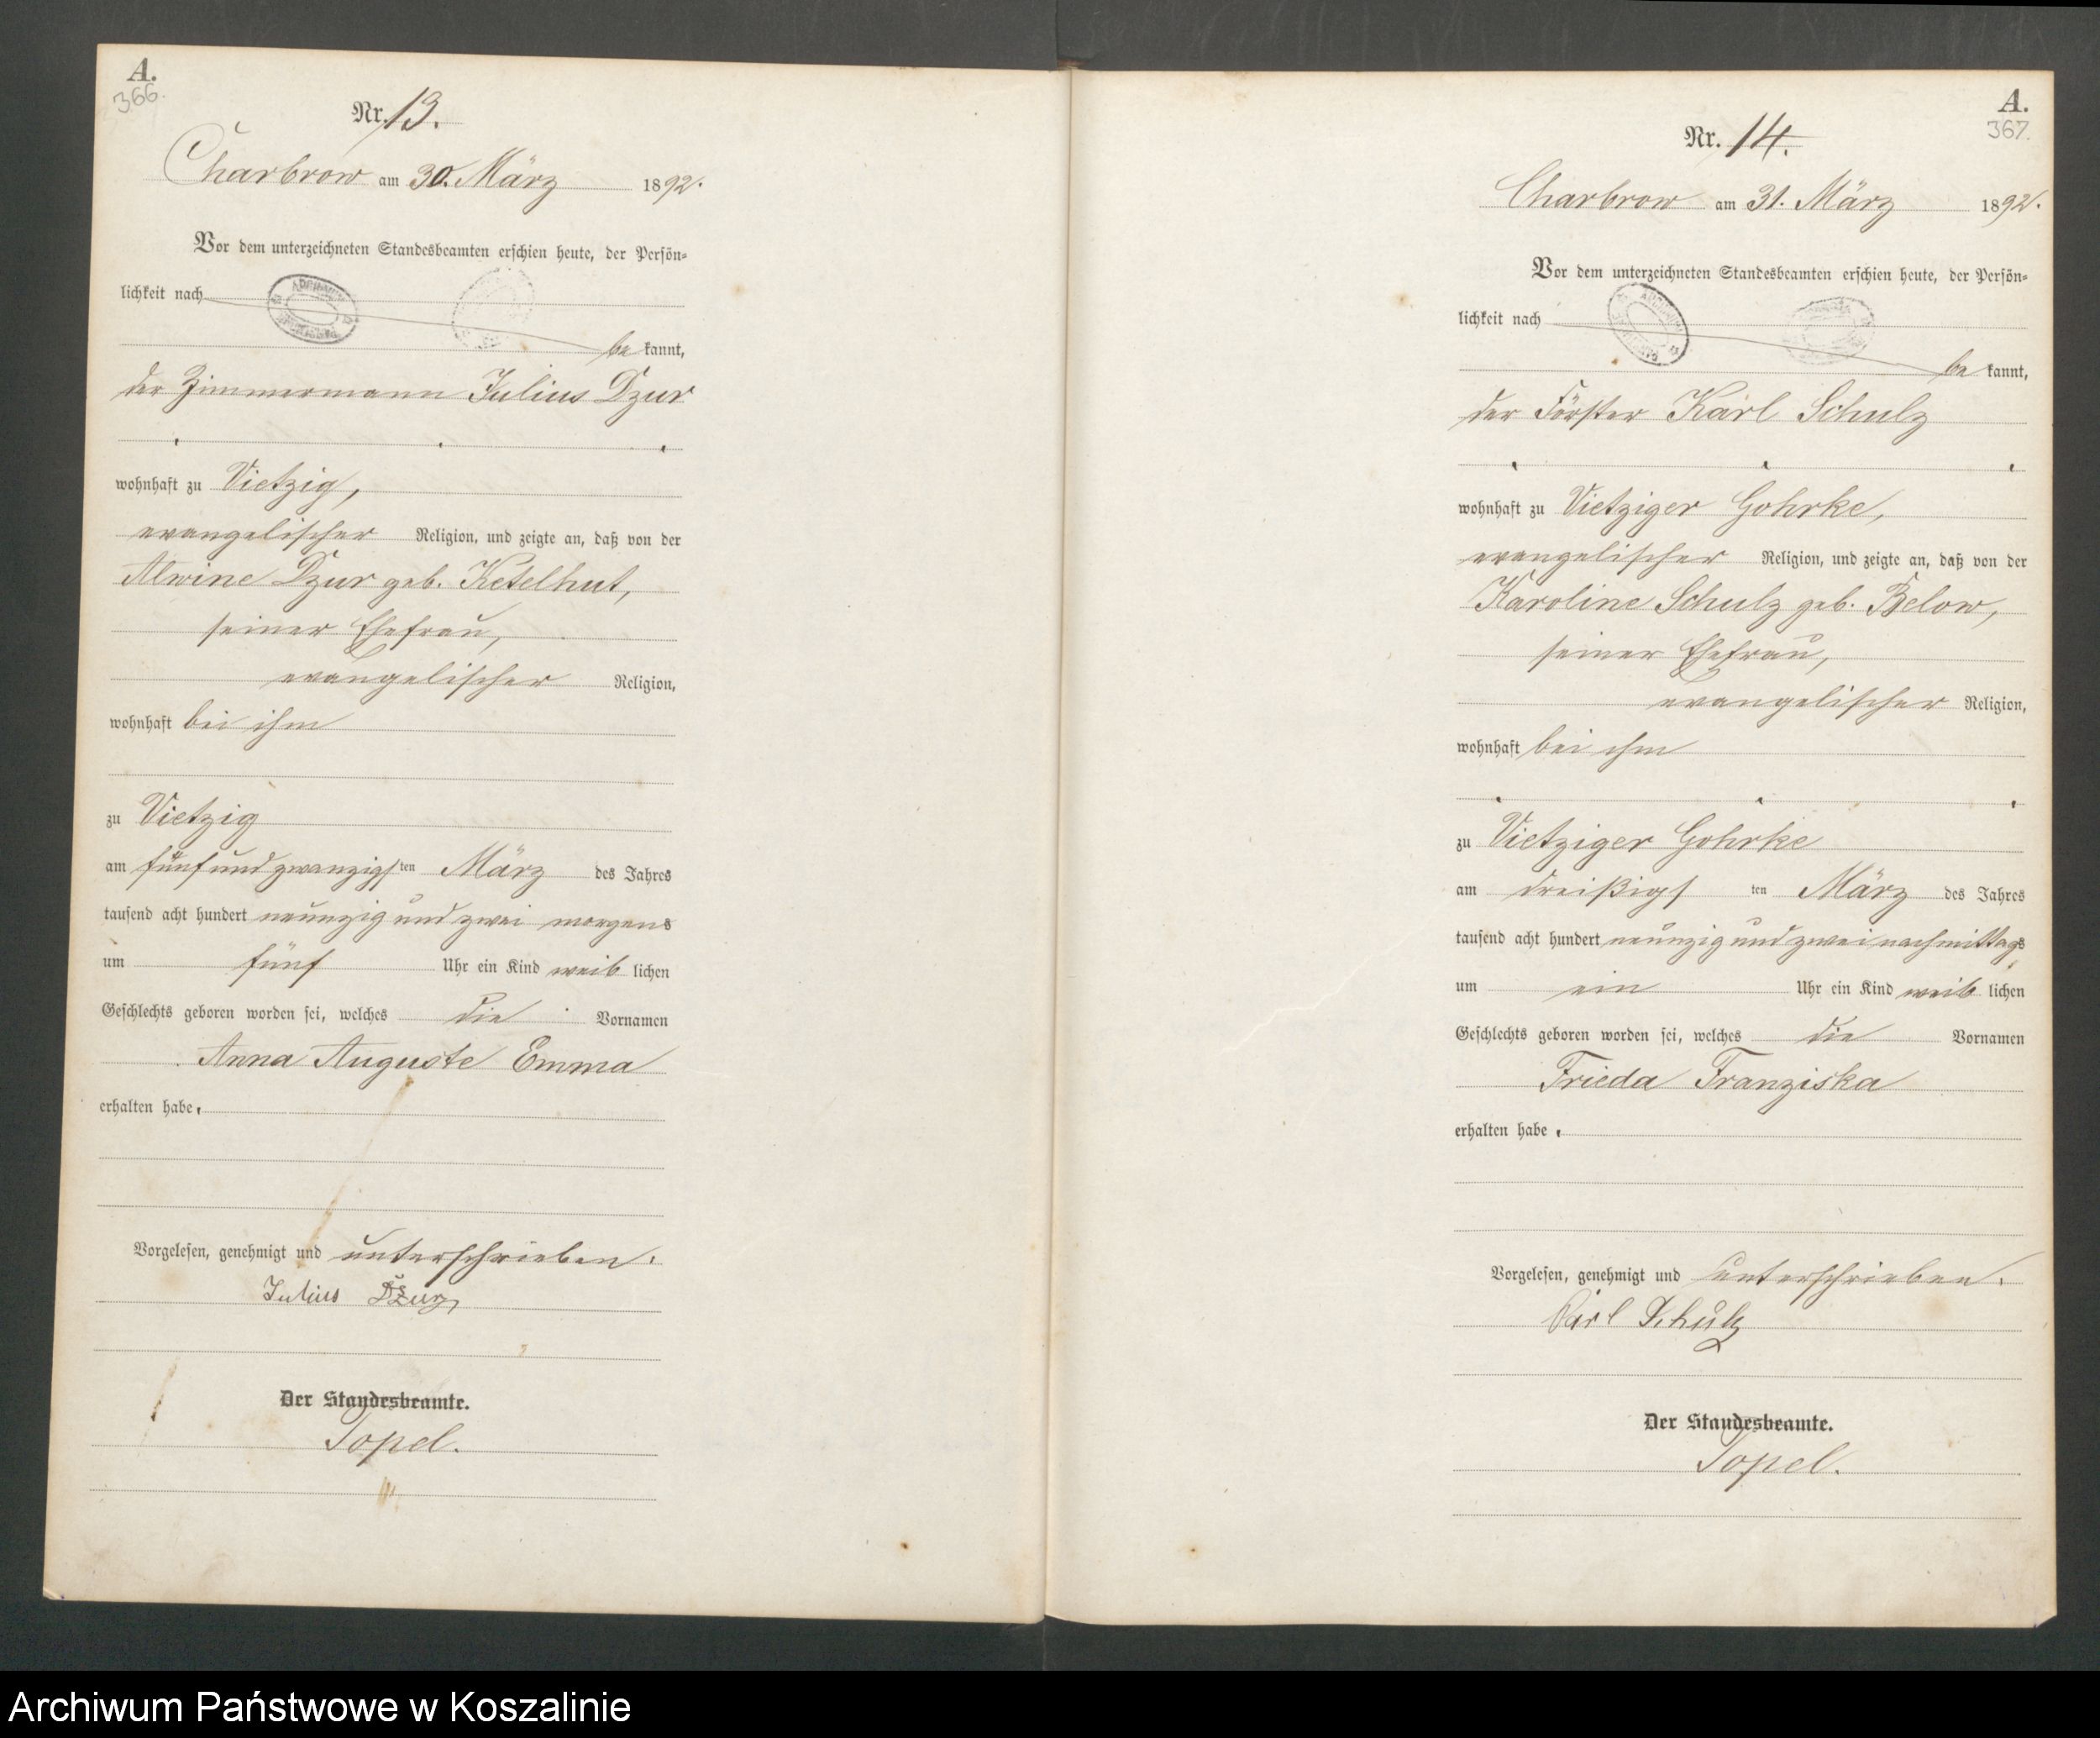 A.
366.
Nr. 13.
Charbrow am 30. März 1892.
Vor dem unterzeichneten Standesbeamten erschien heute, der Persön-
lichkeit nach
be kannt,
der Zimmermann Julius Dzur
wohnhaft zu Vietzig,
evangelischer Religion, und zeigte an, daß von der
Alwine Dzur geb. Ketelhut,
seiner Ehefrau,
evangelischer Religion,
wohnhaft bei ihm
zu Vietzig
am fünfundzwanzigsten März des Jahres
tausend acht hundert neunzig und zwei morgens
um fünf Uhr ein Kind weib lichen
Geschlechts geboren worden sei, welches die Vornamen
Anna Auguste Emma
erhalten habe.
Vorgelesen, genehmigt und unterschrieben.
Julius Dzur
Der Standesbeamte.
Topel.
A.
367.
Nr. 14.
Charbrow am 31. März 1892.
Vor dem unterzeichneten Standesbeamten erschien heute, der Persön-
lichkeit nach
be kannt,
der Förster Karl Schulz
wohnhaft zu Vietziger Gohrke,
evangelischer Religion, und zeigte an, daß von der
Karoline Schulz geb. Below,
seiner Ehefrau,
evangelischer Religion,
wohnhaft bei ihm
zu Vietziger Gohrke
am dreißigsten März des Jahres
tausend acht hundert neunzig und zwei nachmittags
um ein Uhr ein Kind weib lichen
Geschlechts geboren worden sei, welches die Vornamen
Frieda Franziska
erhalten habe.
Vorgelesen, genehmigt und unterschrieben.
Karl Schulz
Der Standesbeamte.
Topel.
Archiwum Państwowe w Koszalinie